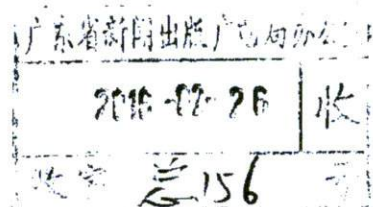 广东省新闻出版广电局办公室
2016-02-26 收
收字 总156 号